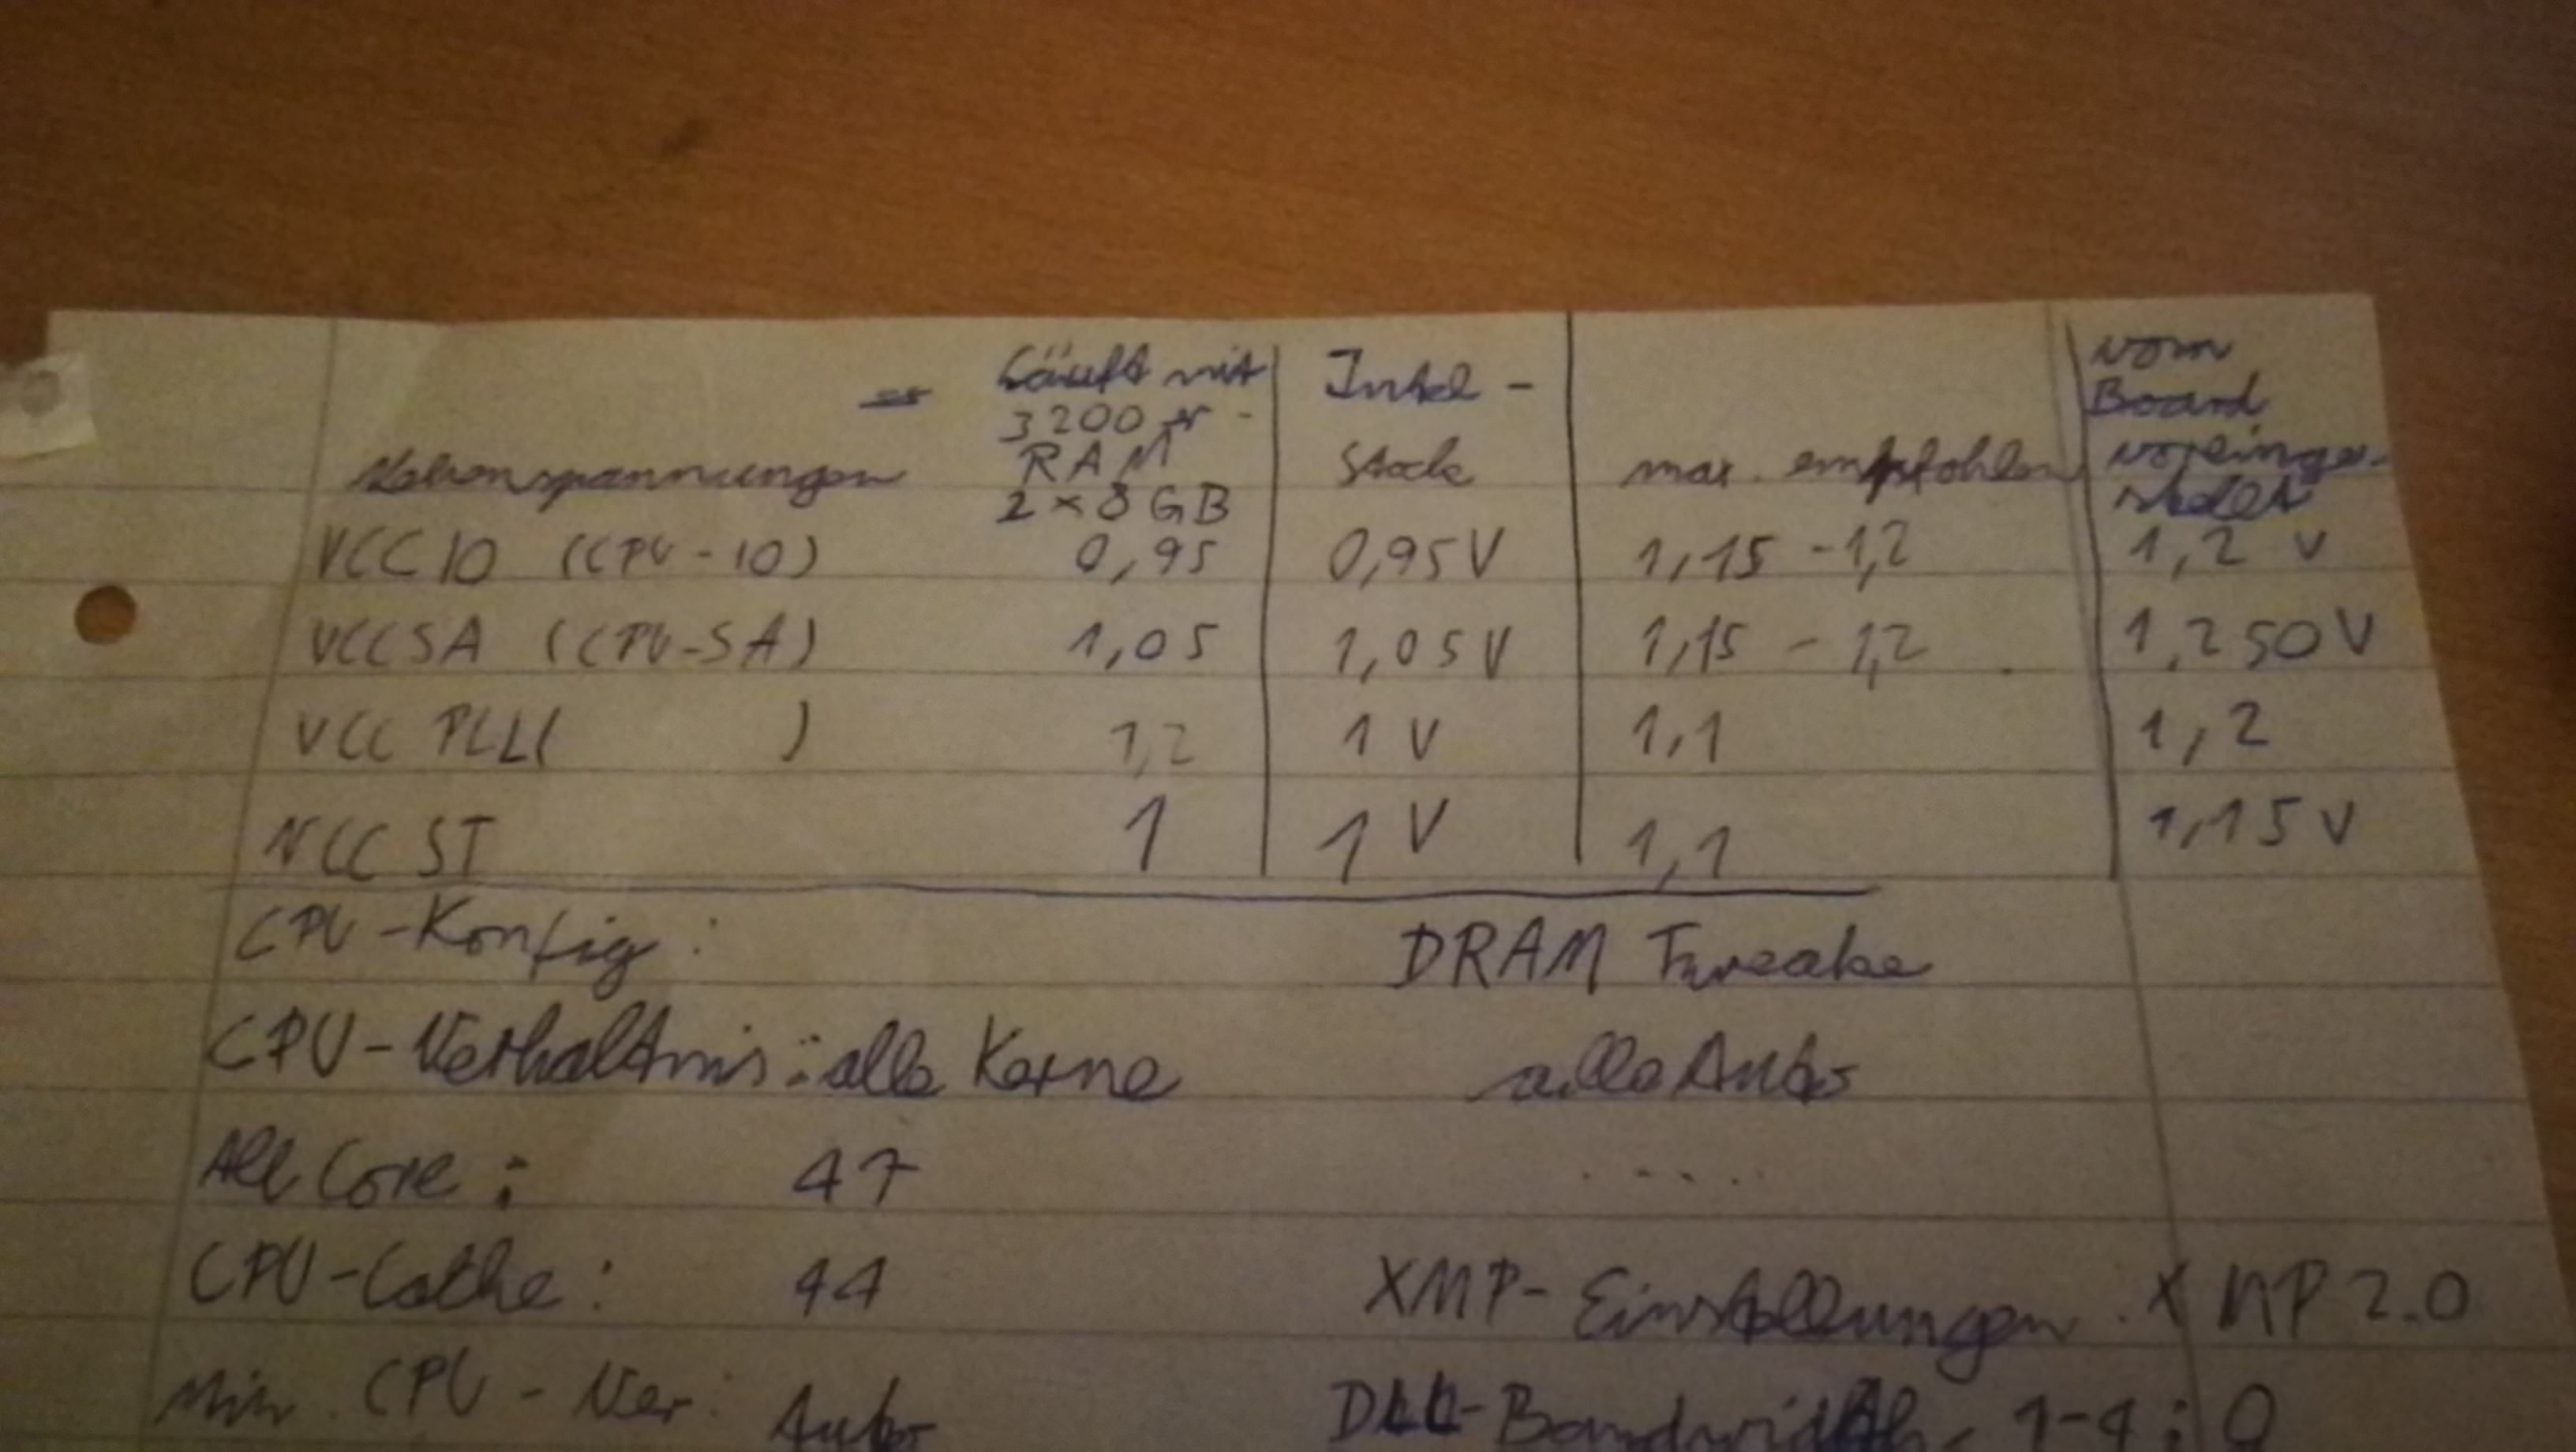 Läuft mit Intel - vom
3200 er - Board
Nebenspannungen RAM Stock max. empfohlen voreinge-
2 x 8 GB stellt
VCC IO (CPU-IO) 0,95 0,95 V 1,15 - 1,2 1,2 V
VCCSA (CPU-SA) 1,05 1,05 V 1,15 - 1,2 1,250 V
VCC PLL( ) 1,2 1 V 1,1 1,2
VCC ST 1 1 V 1,1 1,15 V
CPU-Konfig: DRAM Tweake
CPU-Verhaltnis: alle Kerne alle Auto
All Core: 47 .....
CPU-Cathe: 44 XMP-Einstellungen. XMP 2.0
Min. CPU-Ver: Auto DLL-Bandwidth, 1-4: 0